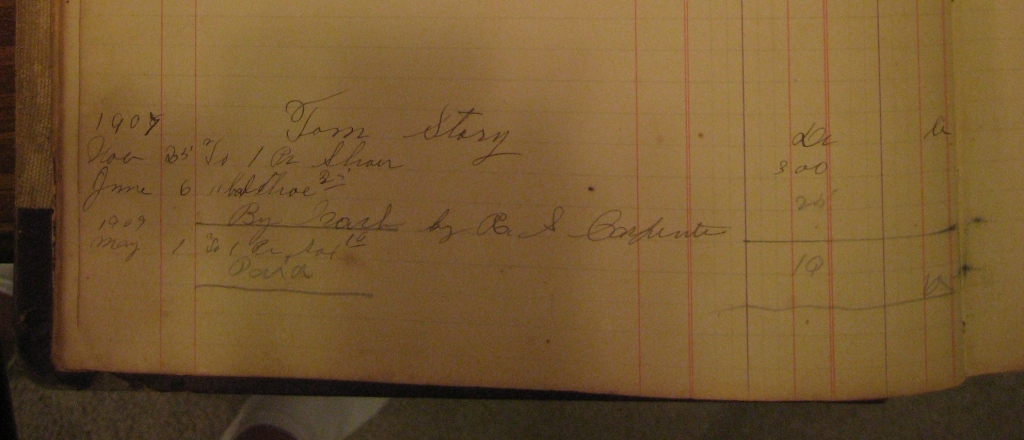 1907 Tom Story Dr Cr
Nov 25 To 1 Pr Shoes 3 00
June 6 " Shoe 25 25
By Cash by R. S. Carpenter
1909
May 1 To 1 Pr 10 10
Paid